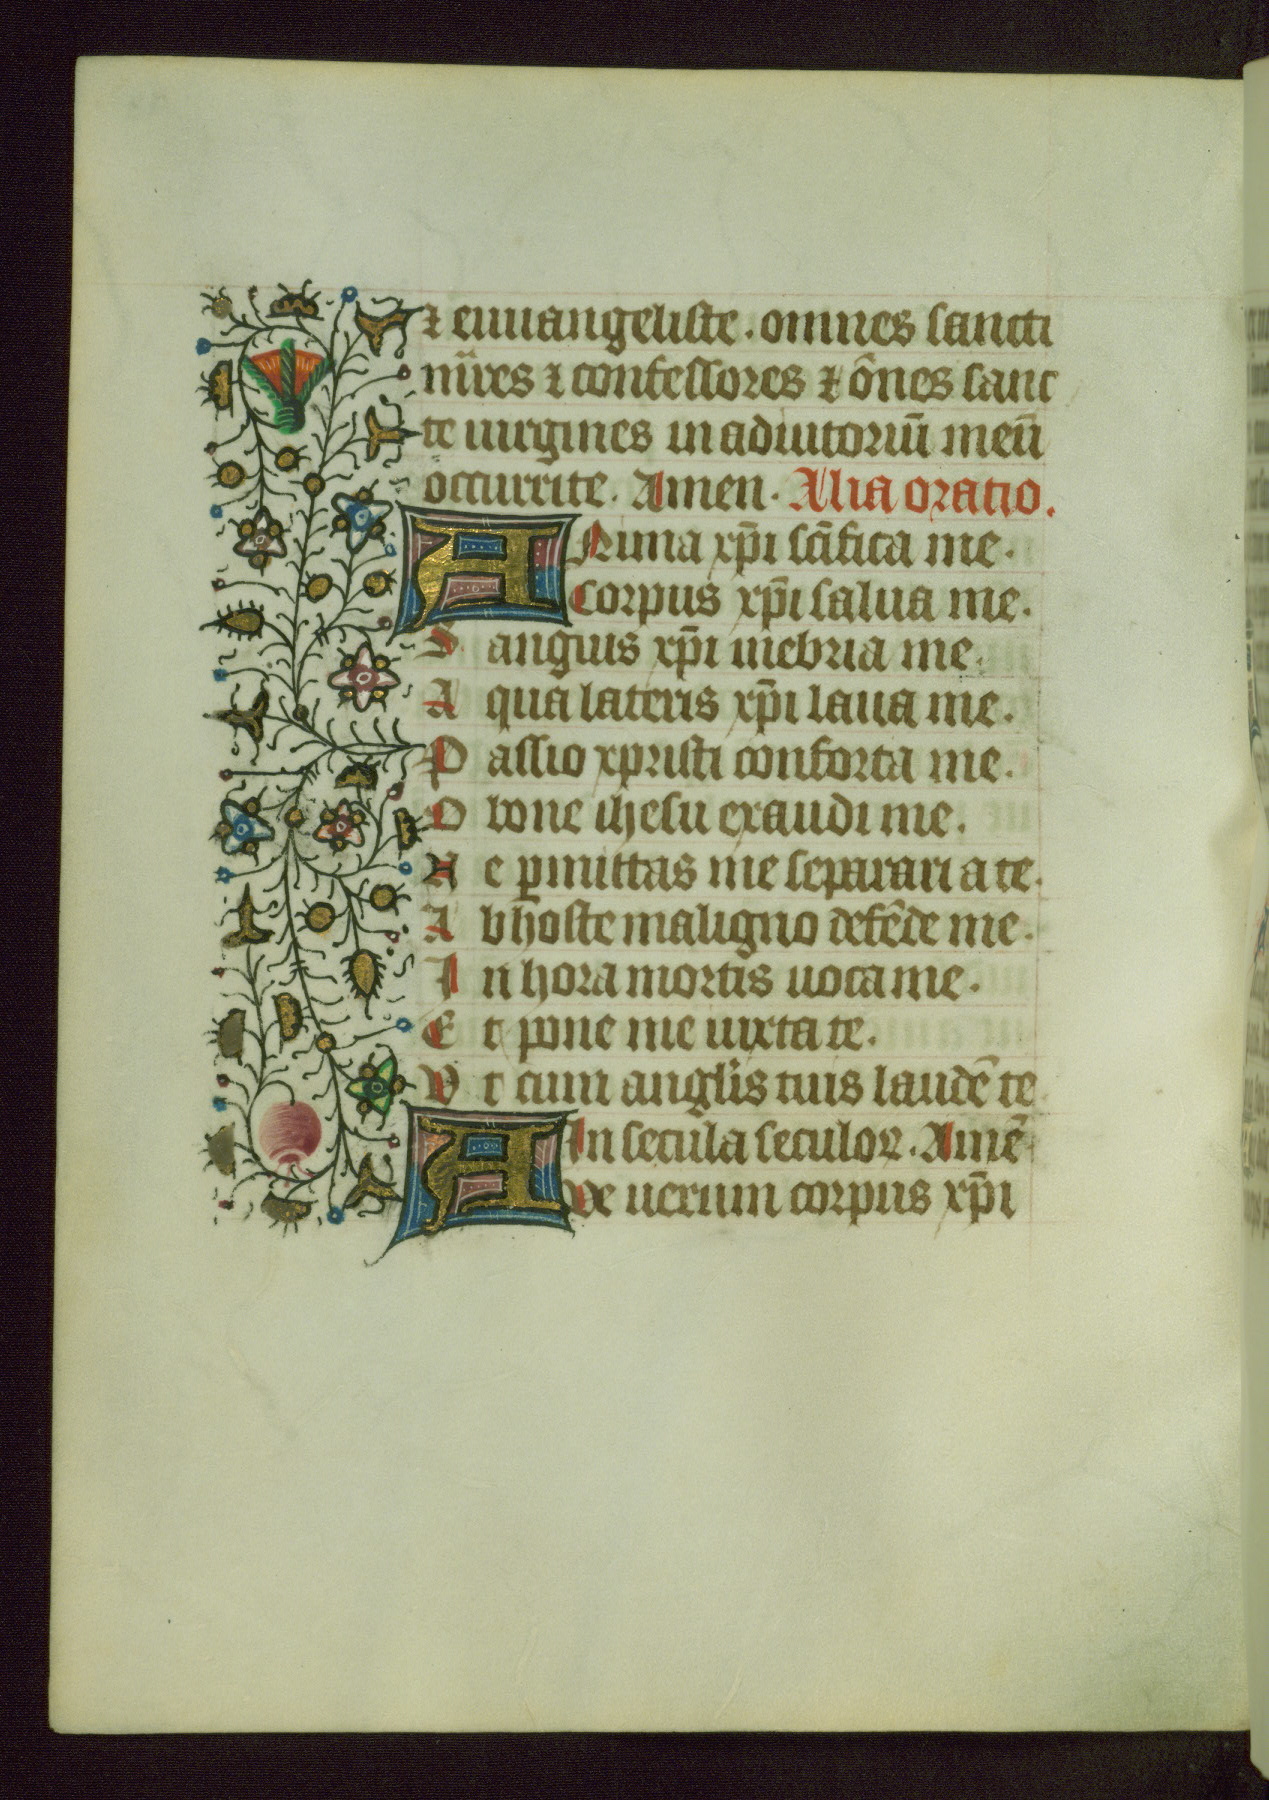 ⁊ euuangeliste. omnes sancti
mr̄ires ⁊ confessores ⁊ om̄nes sanc
te uirgines in adiutoriū meū
occurrite. Amen. Alia oratio.
ANima xp̄i scīfica me.
Corpus xp̄i salua me.
Sanguis xp̄i inebria me.
Aqua lateris xp̄i laua me.
Passio xpristi conforta me.
O bone ihesu exaudi me.
Ne ꝑmittas me separari a te.
Ab hoste maligno defēde me.
In hora mortis uoca me.
Et pone me iuxta te.
Vt cum angl̄is tuis laudē te
In secula seculoꝝ. Amē
Aue uerum corpus xp̄i